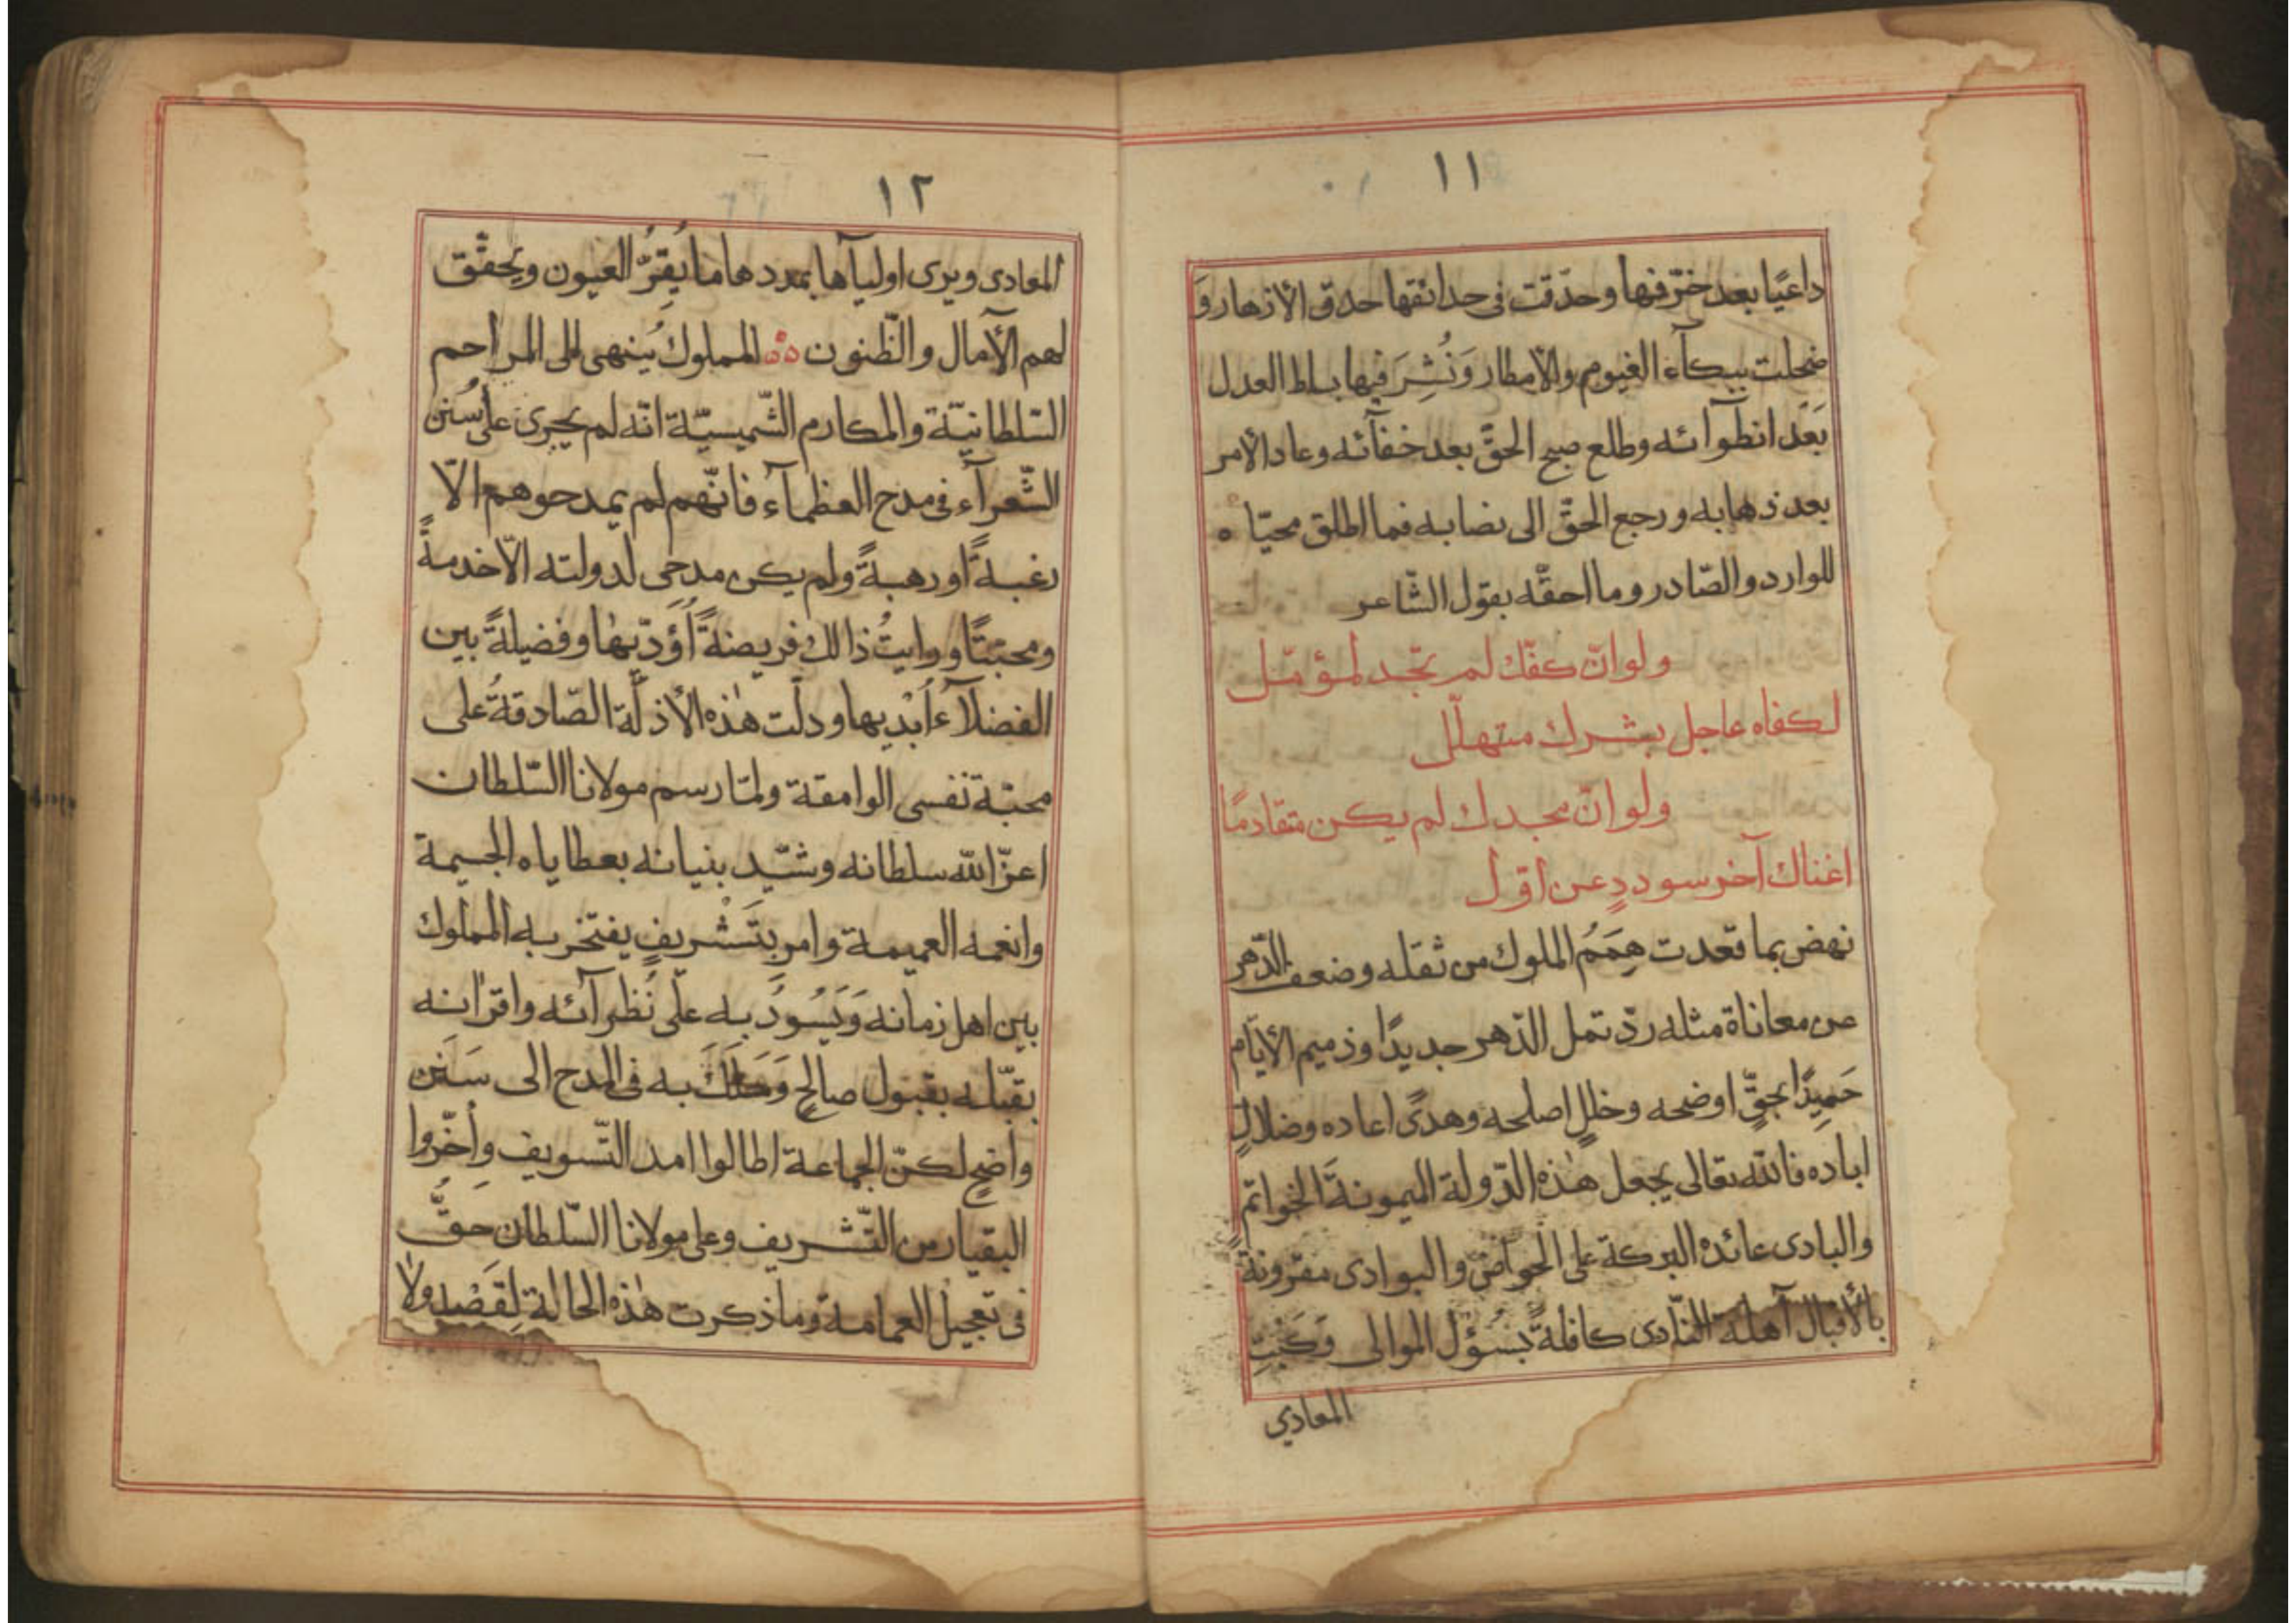 ١١
داعيًا بعد خرّفها وحدّقت فى حدائقها حدق الأزهار وَ
ضحكت ببكآء الغيوم والأمطار وَنُشِرَ فيها بساط العدل
بَعْدَ انطوآئه وطلع صبح الحقّ بعد خفآئه وعاد الأمر
بعد ذهابه ورجع الحقّ الى نصابه فما اطلق محيّاه
للوارد والصّادر وما احقّه بقول الشّاعر
ولو انّ كفّك لم تجد لمؤمّل
لكفاه عاجل بشرك متهلّل
ولو انّ مجدك لم يكن متقادمًا
اغناك آخر سوددٍ عن اوّل
نهض بما قعدت هِمَمُ الملوك من ثقله وضعف الدّهر
عن معاناة مثله ردّ تمل الدّهر جديدًا وذميم الأيّام
حَمِيدًا بحقٍّ اوضحه وخللٍ اصلحه وهدًى اعاده وضلالٍ
اباده فالله تعالى يجعل هٰذه الدّولة الميمونةَ الخواتم
والبادى عائدة البركة على الحواضر والبوادى مقرونةً
بالأقبال آهلة النّادى كافلةً بسُؤل الموالى وَكَبْتِ
المعادي
١٢
المعادى ويرى اوليآها بمددها ما يُقِرُّ العيون ويحقّق
لهم الآمال والظّنون المملوك يُنهى الى المراحم
السّلطانيّة والمكارم الشّميسيّة انّه لم يجرى على سُنن
الشّعرآء فى مدح العظمآء فانّهم لم يمدحوهم الّا
رغبةً او رهبةً ولم يكن مدحى لدولته الّا خدمةً
ومحبّتًا ورايتُ ذالك فريضةً أُؤدّيها وفضيلةً بين
الفضلآء اُبْديها ودلّت هٰذه الأدلّة الصّادقةُ على
محبّة نفسى الوامقة ولمّا رسم مولانا السّلطان
اعزّ الله سلطانه وشيّد بنيانه بعطاياه الجسيمة
وانعمه العميمة وامر بِتَشْريفٍ يفتخر به المملوك
بين اهل زمانه وَيَسُودُ به على نُظرآئه واقرانه
بقبّله بقبول صالحٍ وَسَلَكَ به فى المدح الى سَنَن
واضحٍ لكنّ الجماعة اطالوا امد التّسويف واخّروا
البقيار من التّشريف وعلى مولانا السّلطان حقٌّ
فى تعجيل العمامة وما ذكرت هٰذه الحالة لِقَصْدٍ ولا